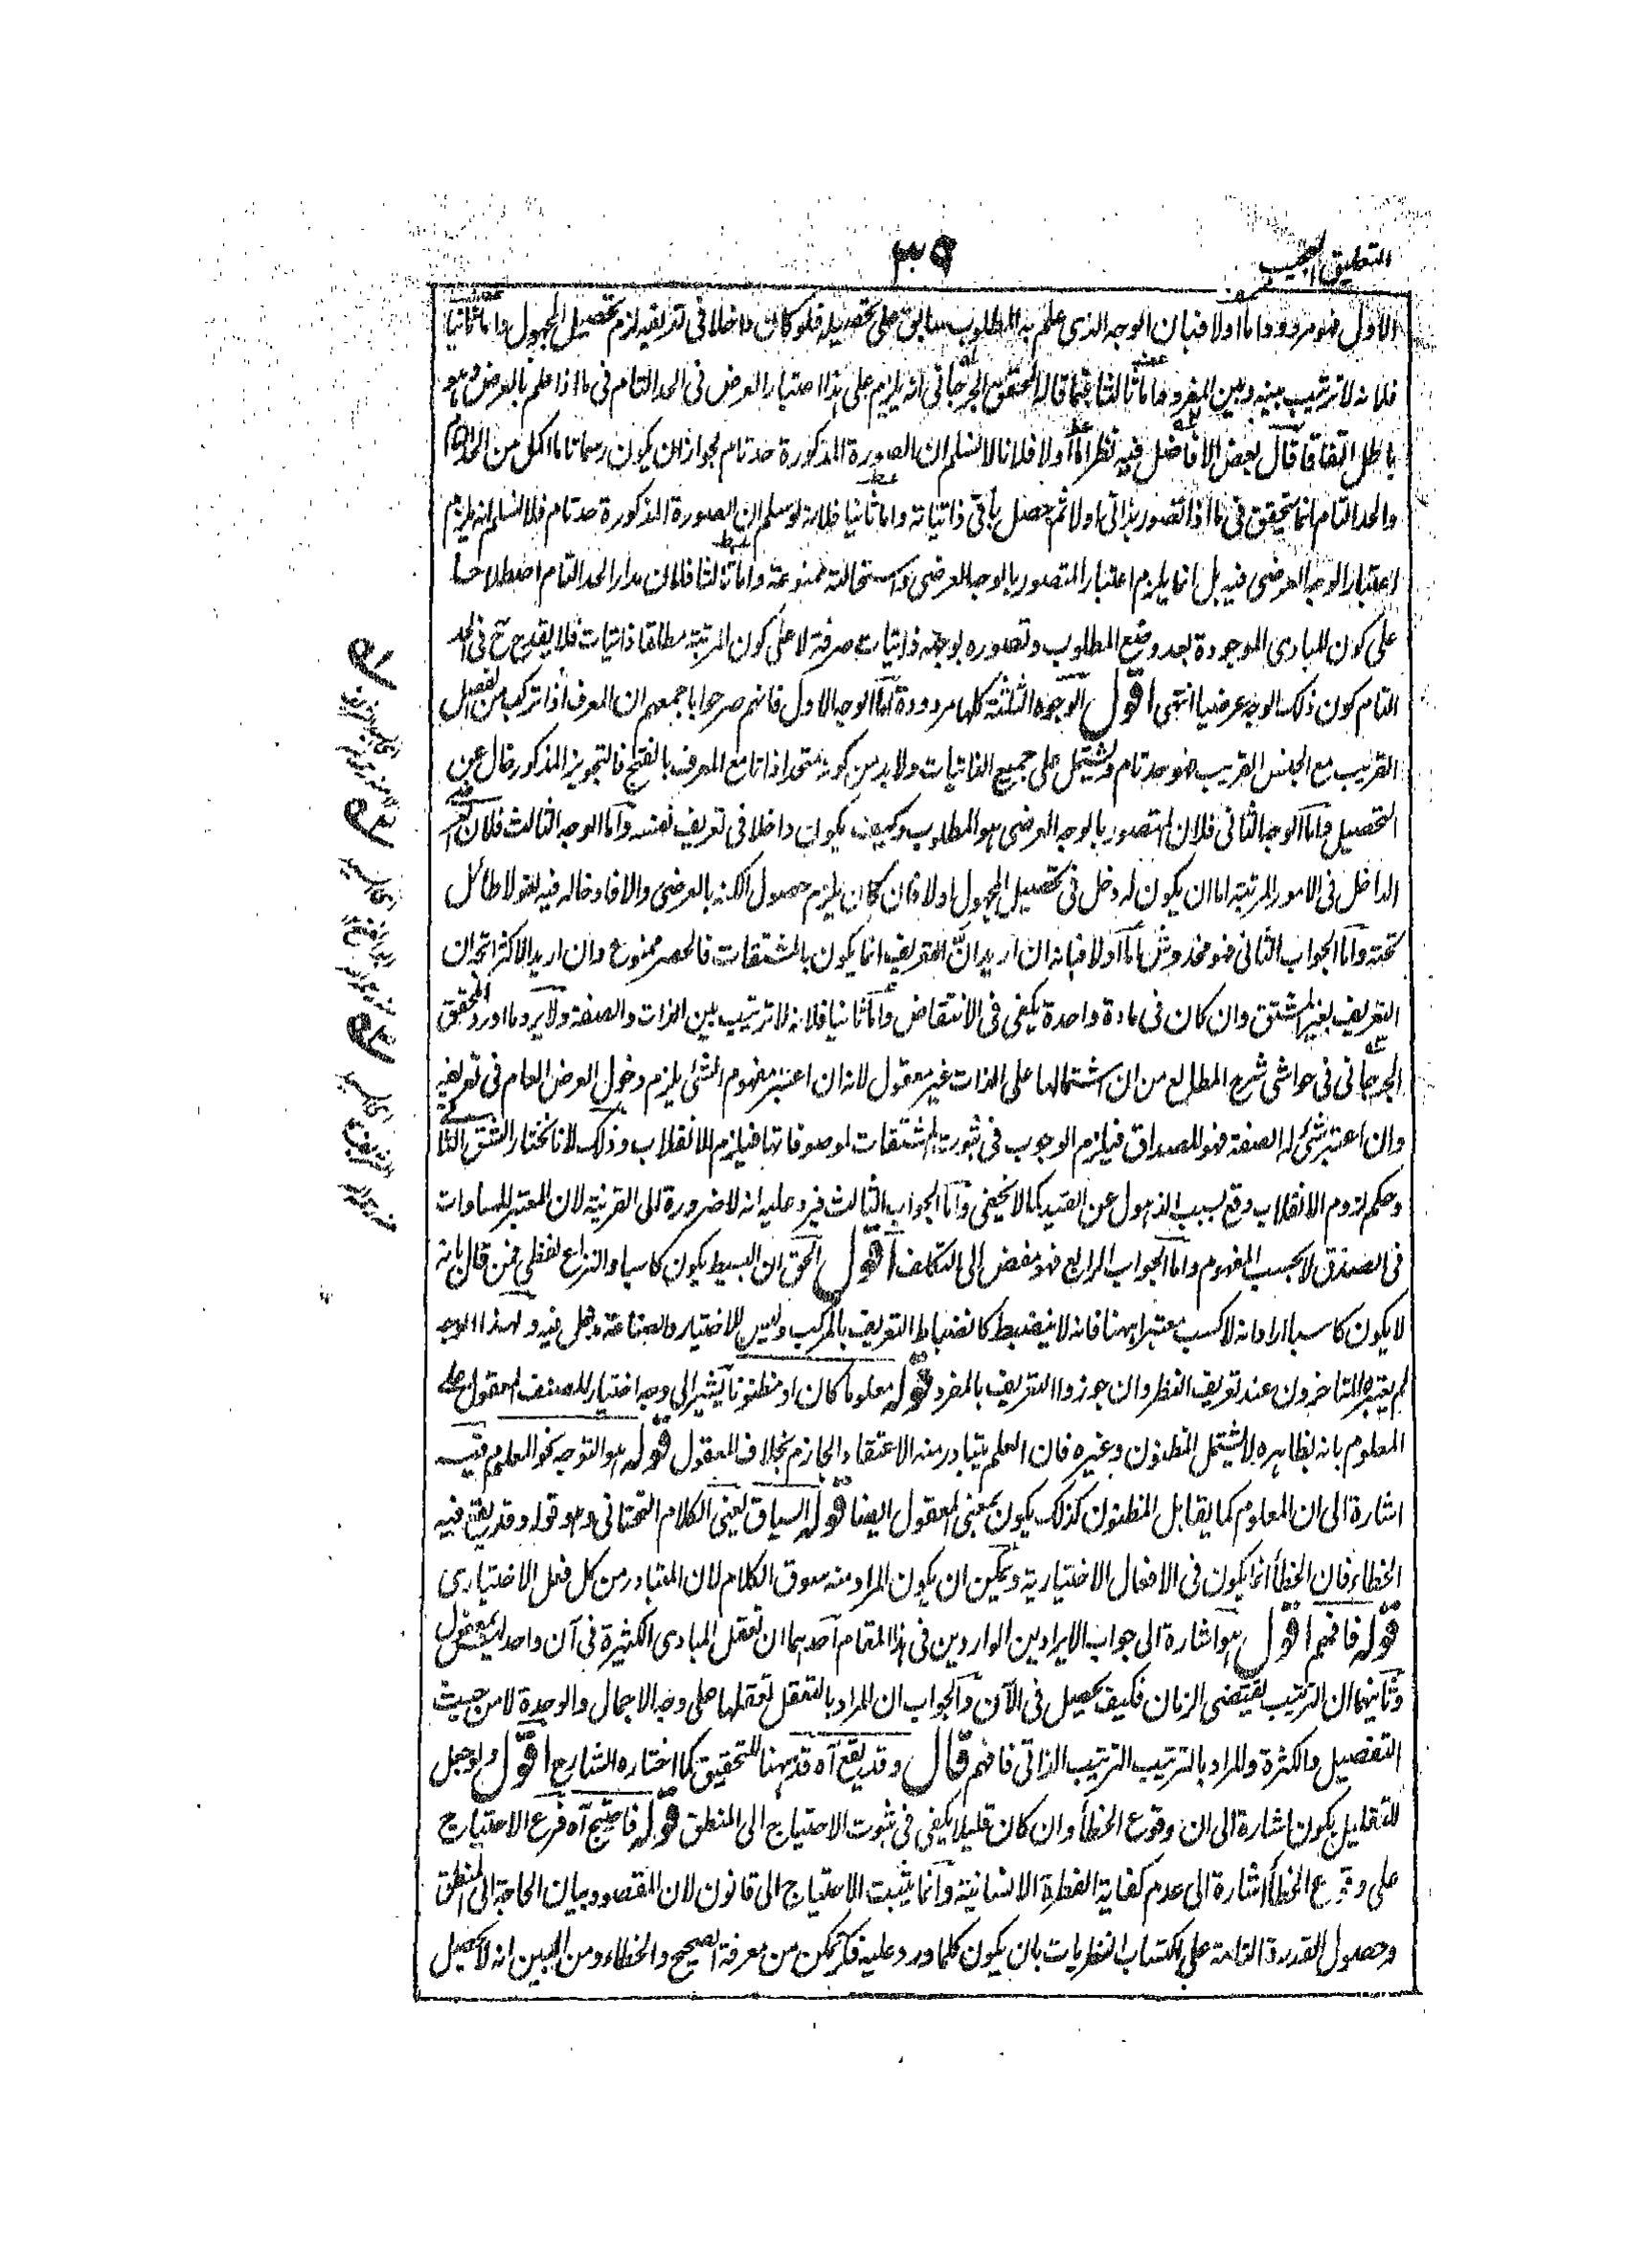 التعليق العجيب
٣٩
الاول فهو مردود اما اولا فبان الوجه الذى علم به المطلوب سابق على تحصيله فلو كان داخلا فى تعريفه لزم تحصيل المجهول واما ثانيا
فلانه لا ترتيب بينه وبين المفرد واما ثالثا فلما قاله المحقق الجرجانى انه يلزم على هذا اعتبار العرض فى الحد التام فى ما اذا علم بالعرض وهو
باطل اتفاقا قال بعض الافاضل فيه نظر اما اولا فلانا لا نسلم ان الصورة المذكورة حد تام لجواز ان يكون رسما تاما اكمل من الحد التام
والحد التام انما يتحقق فى ما اذا تصور بذاتى اولا ثم حصل باقى ذاتياته واما ثانيا فلانه لو سلم ان الصورة المذكورة حد تام فلا نسلم انه يلزم
اعتبار الوجه العرضى فيه بل انما يلزم اعتبار المتصور بالوجه العرضى واستحالته ممنوعة واما ثالثا فلان مدار الحد التام اصطلاحا
على كون المبادى الموجودة بعد وضع المطلوب وتصوره بوجه ذاتيات صرفة لا على كون المرتبة مطلقا ذاتيات فلا يقدح ح فى الحد
التام كون ذلك الوجه عرضيا انتهى اقول الوجوه الثلثة كلها مردودة اما الوجه الاول فانهم صرحوا باجمعهم ان المعرف اذا تركب من الفصل
القريب مع الجنس القريب فهو حد تام ويشتمل على جميع الذاتيات ولا بد من كونه متحدا ذاتا مع المعرف بالفتح فالتجويز المذكور خال عن
التحصيل واما الوجه الثانى فلان المتصور بالوجه العرضى هو المطلوب وكيف يكون داخلا فى تعريف نفسه واما الوجه الثالث فلان
الداخل فى الامور المرتبة اما ان يكون له دخل فى تحصيل المجهول اولا فان كان يلزم حصول الكنه بالعرضى والا فادخاله فيه لغو لا طائل
تحته واما الجواب الثانى فهو مخدوش اما اولا فبانه ان اريد ان التعريف انما يكون بالمشتقات فالحصر ممنوع وان اريد الاكثر اتجه ان
التعريف بغير المشتق وان كان فى مادة واحدة يكفى فى الانتقاض واما ثانيا فلانه لا ترتيب بين الذات والصفة ولا يرد ما اورده المحقق
الجرجانى فى حواشى شرح المطالع من ان اشتمالها على الذات غير معقول لانه ان اعتبر مفهوم الشئ يلزم دخول العرض العام فى تعريفه
وان اعتبر شئ له الصفة فهو المصداق فيلزم الوجوب فى ثبوت المشتقات لموصوفاتها فيلزم الانقلاب وذلك لانا نختار الشق الثانى
وحكم لزوم الانقلاب وقع بسبب الذهول عن القيد كما لا يخفى واما الجواب الثالث فيرد عليه انه لا ضرورة الى القرنية لان المعتبر المساوات
فى الصدق لا بحسب المفهوم واما الجواب الرابع فهو مفض الى التكلف اقول الحق ان البسيط يكون كاسبا والنزاع لفظى فمن قال بانه
لا يكون كاسبا اراد انه لا كسب معتبرا ههنا فانه لا ينضبط كانضباط التعريف بالمركب وليس للاختيار والصناعة دخل فيه ولهذا الوجه
لم يعتبره المتاخرون عند تعريف النظر وان جوزوا التعريف بالمفرد قوله معلوما كان او مظنونا يشير الى وجه اختيار المصنف المعقول على
المعلوم بانه بظاهره لا يشتمل المظنون وغيره فان العلم يتبادر منه الاعتقاد الجازم بخلاف المعقول قوله هو التوجه نحو المعلوم فيه
اشارة الى ان المعلوم كما يقابل المظنون كذلك يكون بمعنى المعقول ايضا قوله السياق يعنى الكلام التحتانى وهو قوله وقد يقع فيه
الخطاء فان الخطأ انما يكون فى الافعال الاختيارية ويمكن ان يكون المراد منه سوق الكلام لان المتبادر من كل فعل الاختيارى
قوله فافهم اقول هو اشارة الى جواب الايرادين الواردين فى هذا المقام احدهما ان تعقل المبادى الكثيرة فى آن واحد ليس بمعقول
وثانيهما ان الترتيب يقتضى الزمان فكيف يحصل فى الآن والجواب ان المراد بالتعقل تعقلها على وجه الاجمال والوحدة لا من حيث
التفصيل والكثرة والمراد بالترتيب الترتيب الذاتى فافهم قال وقد يقع آه قد ههنا للتحقيق كما اختاره الشارع اقول ولو جعل
للتقليل يكون اشارة الى ان وقوع الخطأ وان كان قليلا يكفى فى ثبوت الاحتياج الى المنطق قوله فاحتيج آه فرع الاحتياج
على وقوع الخطأ اشارة الى عدم كفاية الفطرة الانسانية وانما يثبت الاحتياج الى قانون لان المقصود بيان الحاجة الى المنطق
وحصول القدرة التامة على اكتساب النظريات بان يكون كلما ورد عليه فكر تمكن من معرفة الصحيح والخطاء ومن البين انه لا يحصل